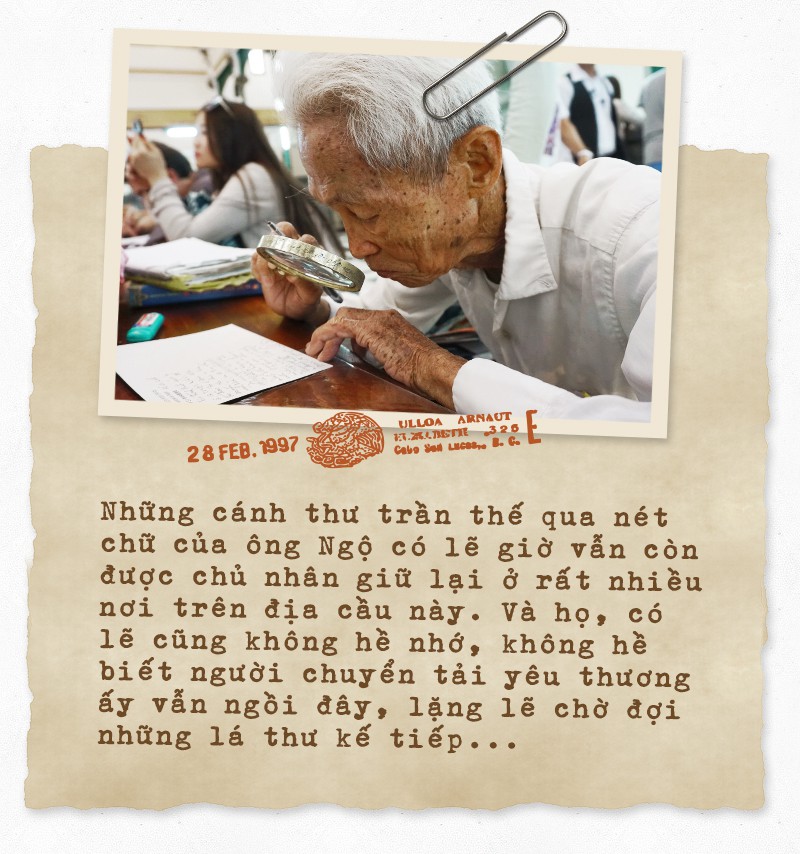 28 FEB. 1997
ULLOA ARNAUT
326 E
Cabo San Lucas, B. C.
Những cánh thư trần thế qua nét
chữ của ông Ngộ có lẽ giờ vẫn còn
được chủ nhân giữ lại ở rất nhiều
nơi trên địa cầu này. Và họ, có
lẽ cũng không hề nhớ, không hề
biết người chuyển tải yêu thương
ấy vẫn ngồi đây, lặng lẽ chờ đợi
những lá thư kế tiếp...